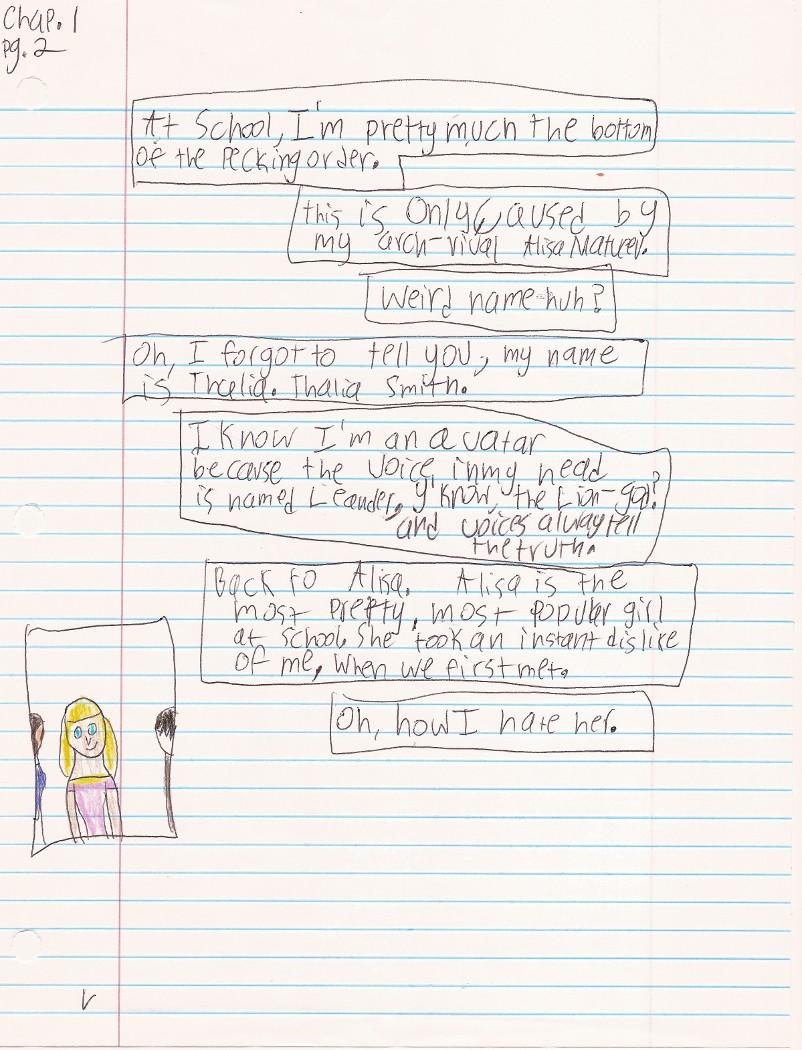 Chap. 1
pg. 2
At School, I'm pretty much the bottom
of the Pecking order.
this is Only Caused by
my arch-rival Alisa
Weird name huh?
Oh, I forgot to tell you, my name
is Thalia. Thalia Smith.
I know I'm an avatar
because the voice in my head
is named Leander. y'know, the Lion-god?
and voices alway tell
the truth.
Back to Alisa. Alisa is the
most pretty, most popular girl
at School. She took an instant dislike
of me, when we first met.
Oh, how I hate her.